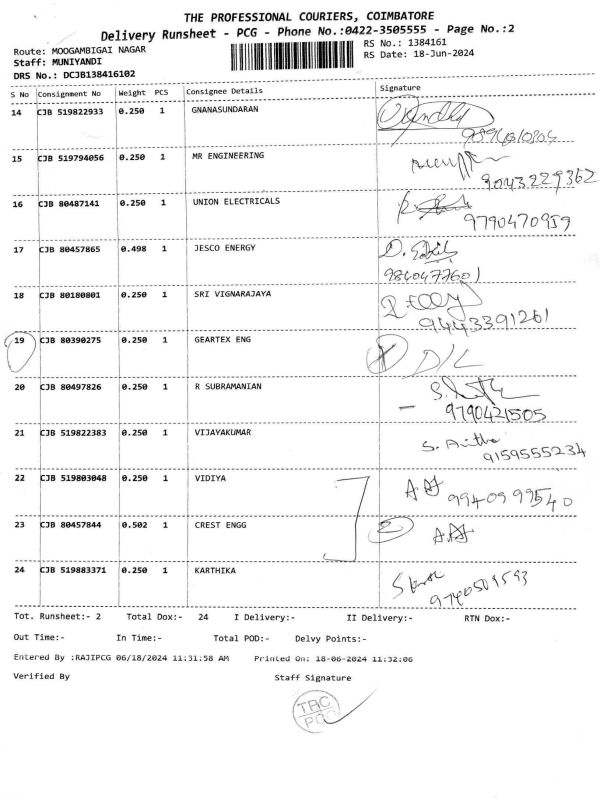 THE PROFESSIONAL COURIERS, COIMBATORE
Delivery Runsheet - PCG - Phone No.:0422-3505555 - Page No.:2
Route: MOOGAMBIGAI NAGAR RS No.: 1384161
Staff: MUNIYANDI RS Date: 18-Jun-2024
DRS No.: DCJB138416102
S No Consignment No Weight PCS Consignee Details Signature
14 CJB 519822933 0.250 1 GNANASUNDARAN
15 CJB 519794056 0.250 1 MR ENGINEERING
9043229362
16 CJB 80487141 0.250 1 UNION ELECTRICALS
9790470959
17 CJB 80457865 0.498 1 JESCO ENERGY
9840477601
18 CJB 80180801 0.250 1 SRI VIGNARAJAYA
9443391261
19 CJB 80390275 0.250 1 GEARTEX ENG D/L
20 CJB 80497826 0.250 1 R SUBRAMANIAN
9790421505
21 CJB 519822383 0.250 1 VIJAYAKUMAR S. Anitha
9159555234
22 CJB 519803048 0.250 1 VIDIYA
9940999540
23 CJB 80457844 0.502 1 CREST ENGG 2
24 CJB 519883371 0.250 1 KARTHIKA
Tot. Runsheet:- 2 Total Dox:- 24 I Delivery:- II Delivery:- RTN Dox:-
Out Time:- In Time:- Total POD:- Delvy Points:-
Entered By :RAJIPCG 06/18/2024 11:31:58 AM Printed On: 18-06-2024 11:32:06
Verified By Staff Signature